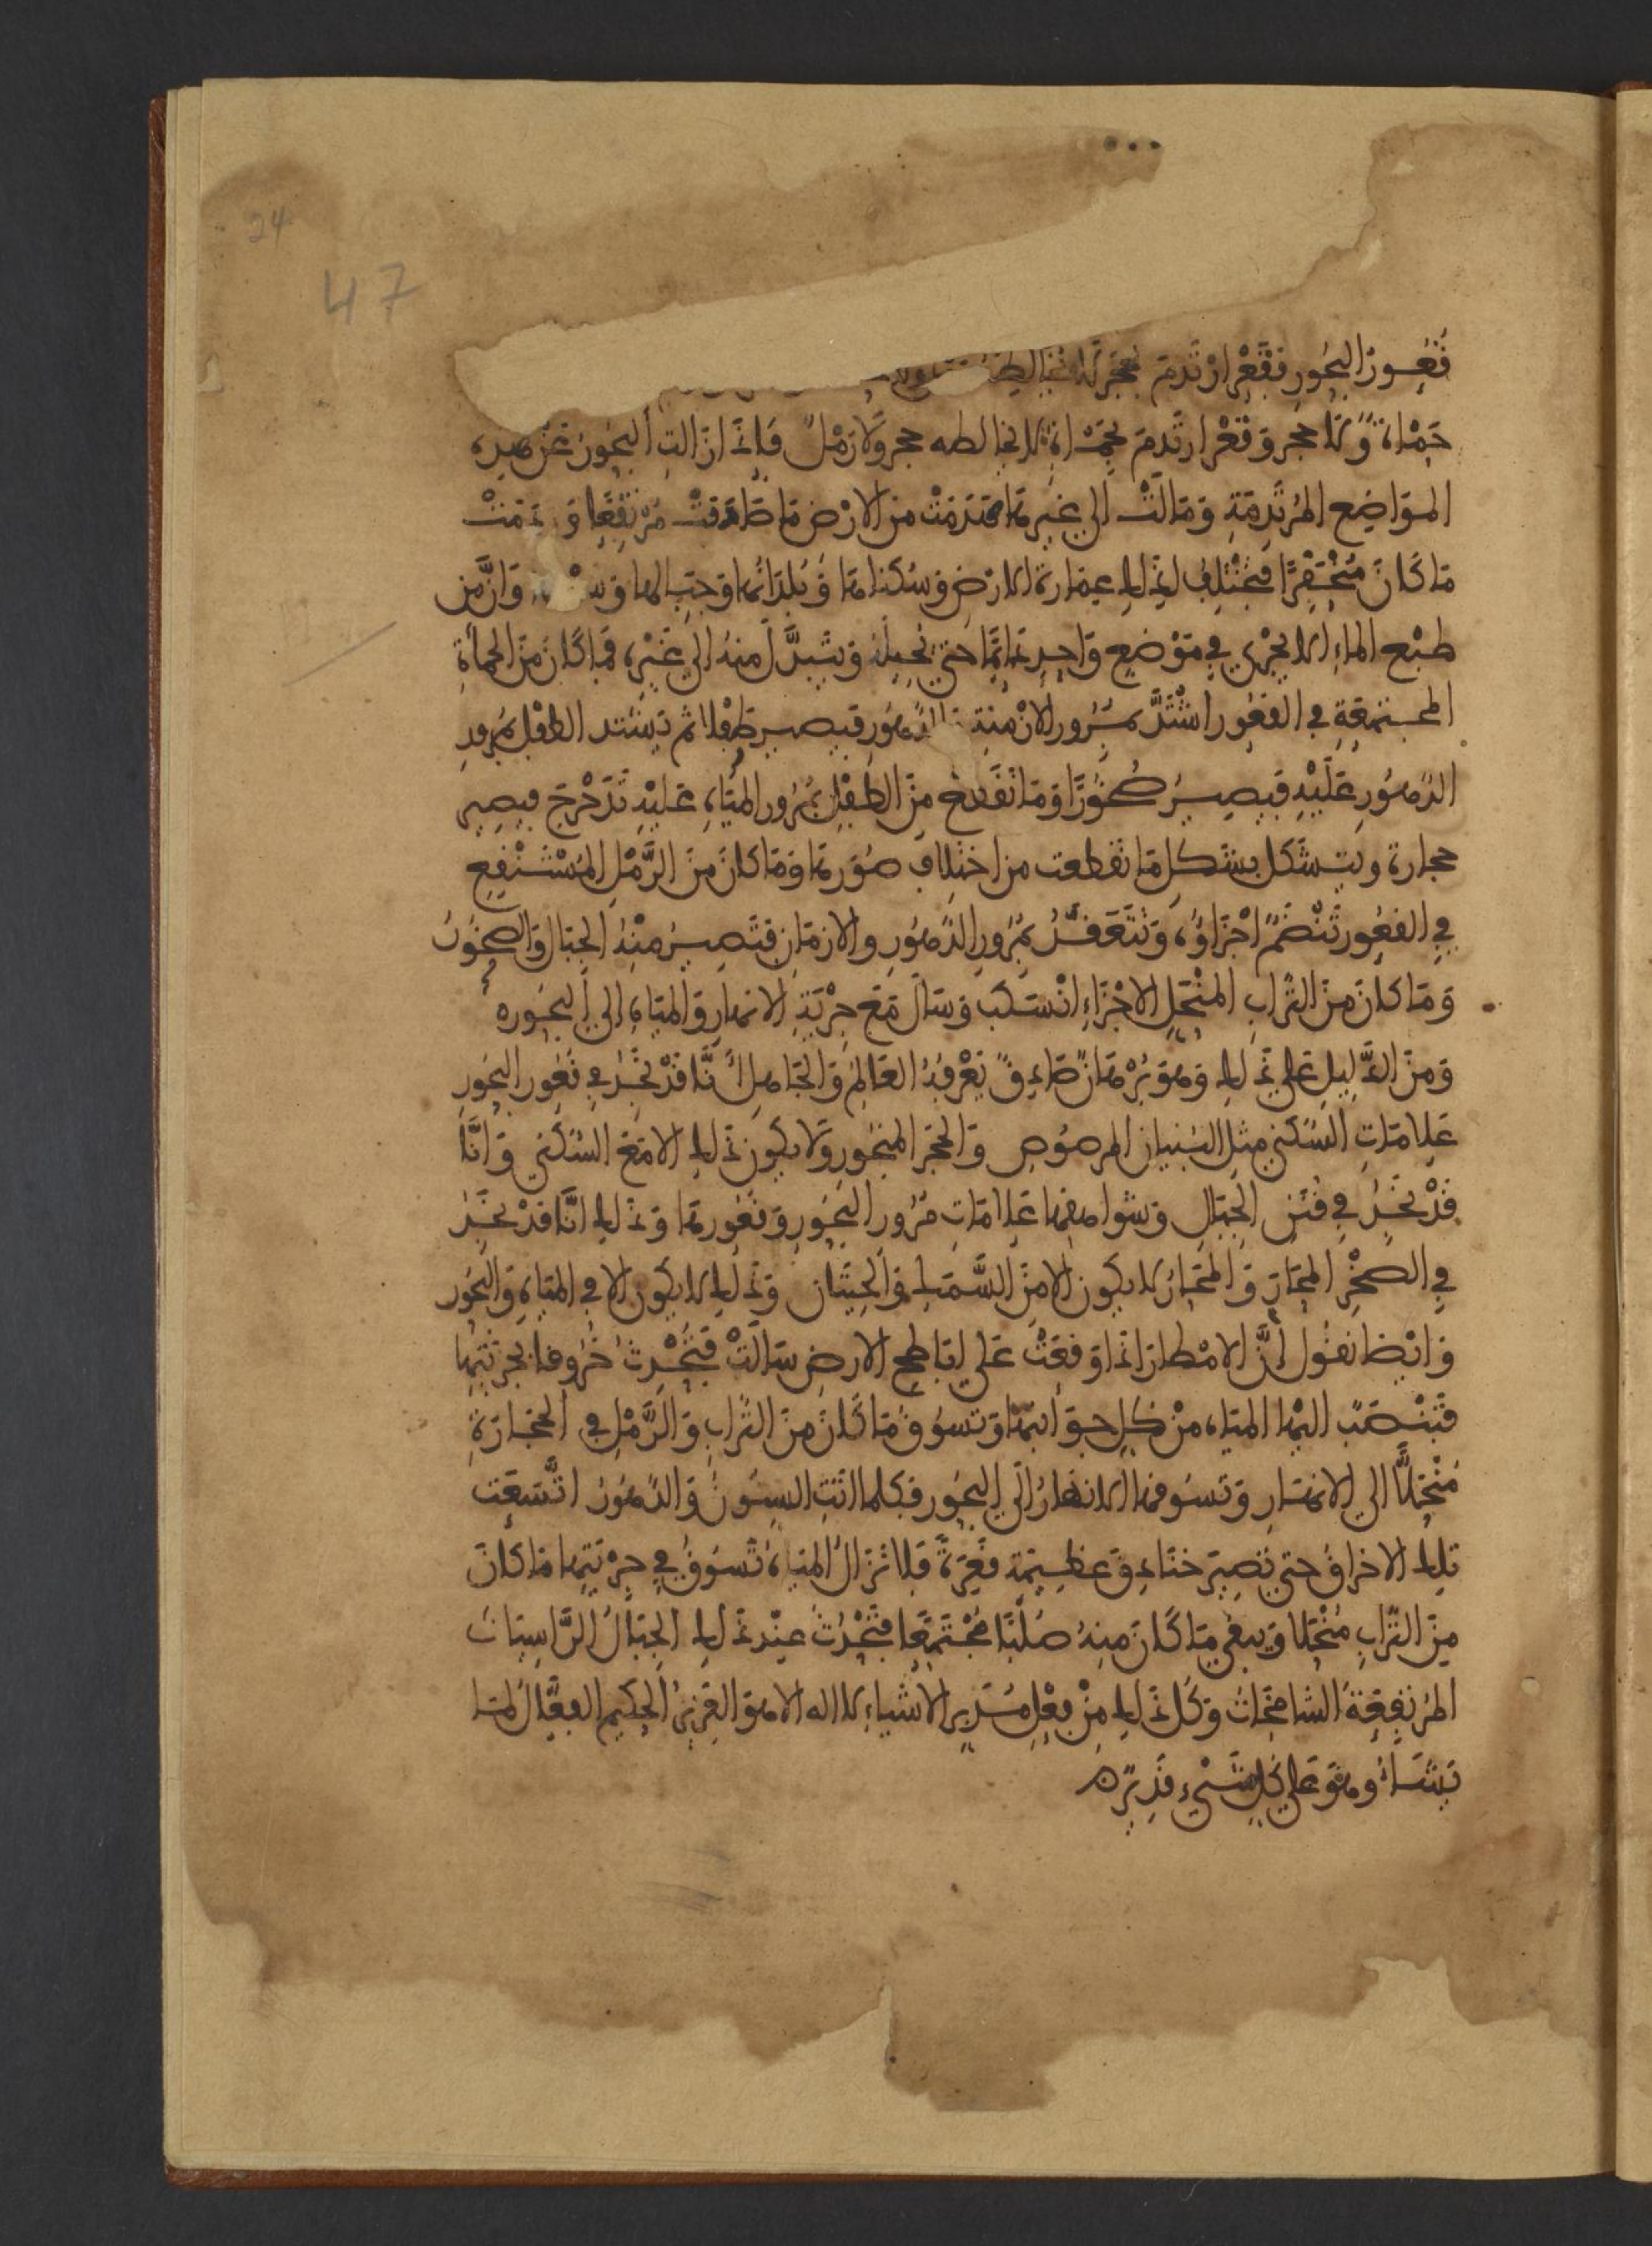 24
47
قُعُورُ البُحُورِ فقَعْر ارْتَدمَ بحَجَر لا يُخَالِطُ
حَمْاَة وَلا حجر وقَعْر ارتَدمَ بحَمْاَة لا يخالطه حجر وَلا رَمْل فَاِذَا زَالتِ البُحُورُ عَنْ هذه
المَوَاضِع المُرْتَدِمَةِ وَمَالَتْ الي غيرها هَدَمَتْ من الارْض مَا صَادَفتْ مُرْتَفِعًا وَرَدَمَتْ
مَا كَانَ مُنْحَفِرًا فيَخْتَلِفُ لِذَلِكَ عِمَارَة الارْضِ وَسُكنَاهَا وَبُلدَانُهَا وَجِبَالهَا وَانَّ مِن
طَبْع الماءِ الا يَجْري في مَوْضِعٍ وَاحِدٍ دَائِمًا حَتي يُحِيلهُ وَيتبدَّلَ منهُ الي غَيْرِه فمَا كَانَ مِنَ الحَمأةِ
المجتمعَةِ في القعُورِ اشْتَدَّ بمُرُور الازْمِنةِ والدهُور فيَصِير طَفْلا ثم يَشتد الطفْل بمُرُورِ
الدّهُورِ عَلَيْهِ فيَصِيرُ صُخُورًا وَمَا تَقَطع مِنَ الطفْلِ بمُرُور المِيَاهِ عَليْهِ تَدَحْرَجَ فيصِير
حجارة ويتشَكل بشَكلِ مَا تقطعت من اختِلافِ صُوَرهَا وَمَا كانَ مِنَ الرَّمْلِ المُسْتَنْقِعِ
في القعُورِ تَنْضَمُّ اجْزَاؤُه وَتَتَعَقَّدُ بمُرُورِ الدّهُورِ والازمَانِ فتَصِيرُ مِنْهُ الجِبَالُ وَالصخُورُ
وَمَا كانَ مِنَ التُّرابِ المُنْحَلِ الاجْزَاءِ انْسَكبَ وَسَالَ مَعَ جِرْيَةِ الانهارِ وَالمِيَاهِ الي البحُور ه
وَمِنَ الدَّلِيلِ عَلي ذَلِكَ وَهوَ بُرْهَانٌ صَادِقٌ يَعْرِفهُ العَالِمُ وَالجَاهِل اَنَّا قدْ نجِدُ في قعُورِ البحُورِ
عَلامَاتِ السُّكنَي مِثل البُنيان المرصُوصِ وَالحَجَرِ المنجُورِ وَلا يكون ذَلِكَ الا مَعَ السُّكنَي وَانَّا
قدْ نجِدُ في قُنَنِ الجِبَالِ وَشَواهِقِهَا عَلامَاتِ مُرُورِ البُحُورِ وَقعُورِهَا وَذَلِكَ انَّا قدْ نجِدُ
في الصخْرِ المحَارَ وَالمحَارُ لا يكون الا مِنَ السَّمَكِ وَالحِيتَانِ وَذَلِكَ لا يكون الا في المِيَاهِ وَالبحُور
وَايْضا نقُول اِنَّ الامْطارَ اذَا وَقعَتْ عَلي ابَاطِحِ الارضِ سَالَتْ فتُحْدِثُ خُرُوقا بجِرْيَتِهَا
فتَنْصَبّ اليْهَا المِيَاه مِنْ كلِ جوَانِبهَا وَتسُوق مَا كانَ مِنَ التُّرابِ وَالرَّمْلِ في الحجَارَةِ
مُنْحَلًّا الي الانهَارِ وَتَسُوقهَا الانهَارُ الَي البحُورِ فكلما اتَتِ السِنُونُ وَالدّهُورُ اتَّسَعَت
تِلكَ الاخرَاقُ حَتي تَصِيرَ خَنَادِقَ عَظِيمَة قعِرَةً فَلا تَزَالُ المِيَاهُ تَسُوقُ في جِرْيَتِهَا مَا كانَ
مِنَ التُّرَابِ مُنْحَلا وَيبقي مَا كَانَ مِنهُ صُلْبًا مُجْتَمِعًا فتَحْدُثُ عِنْدَ ذَلِكَ الجِبَالُ الرَّاسِيَاتُ
المرْتفِعَةُ الشامِخَاتُ وَكلّ ذَلِكَ مِنْ فعْلِ مُدَبِّرِ الاشْيَاءِ لا اله الا هوَ العَزِيزُ الحكِيم الفعَّالُ لمَا
يَشَاءُ وهوَ عَلي كلِ شَيْء قَدِيرٌ ه